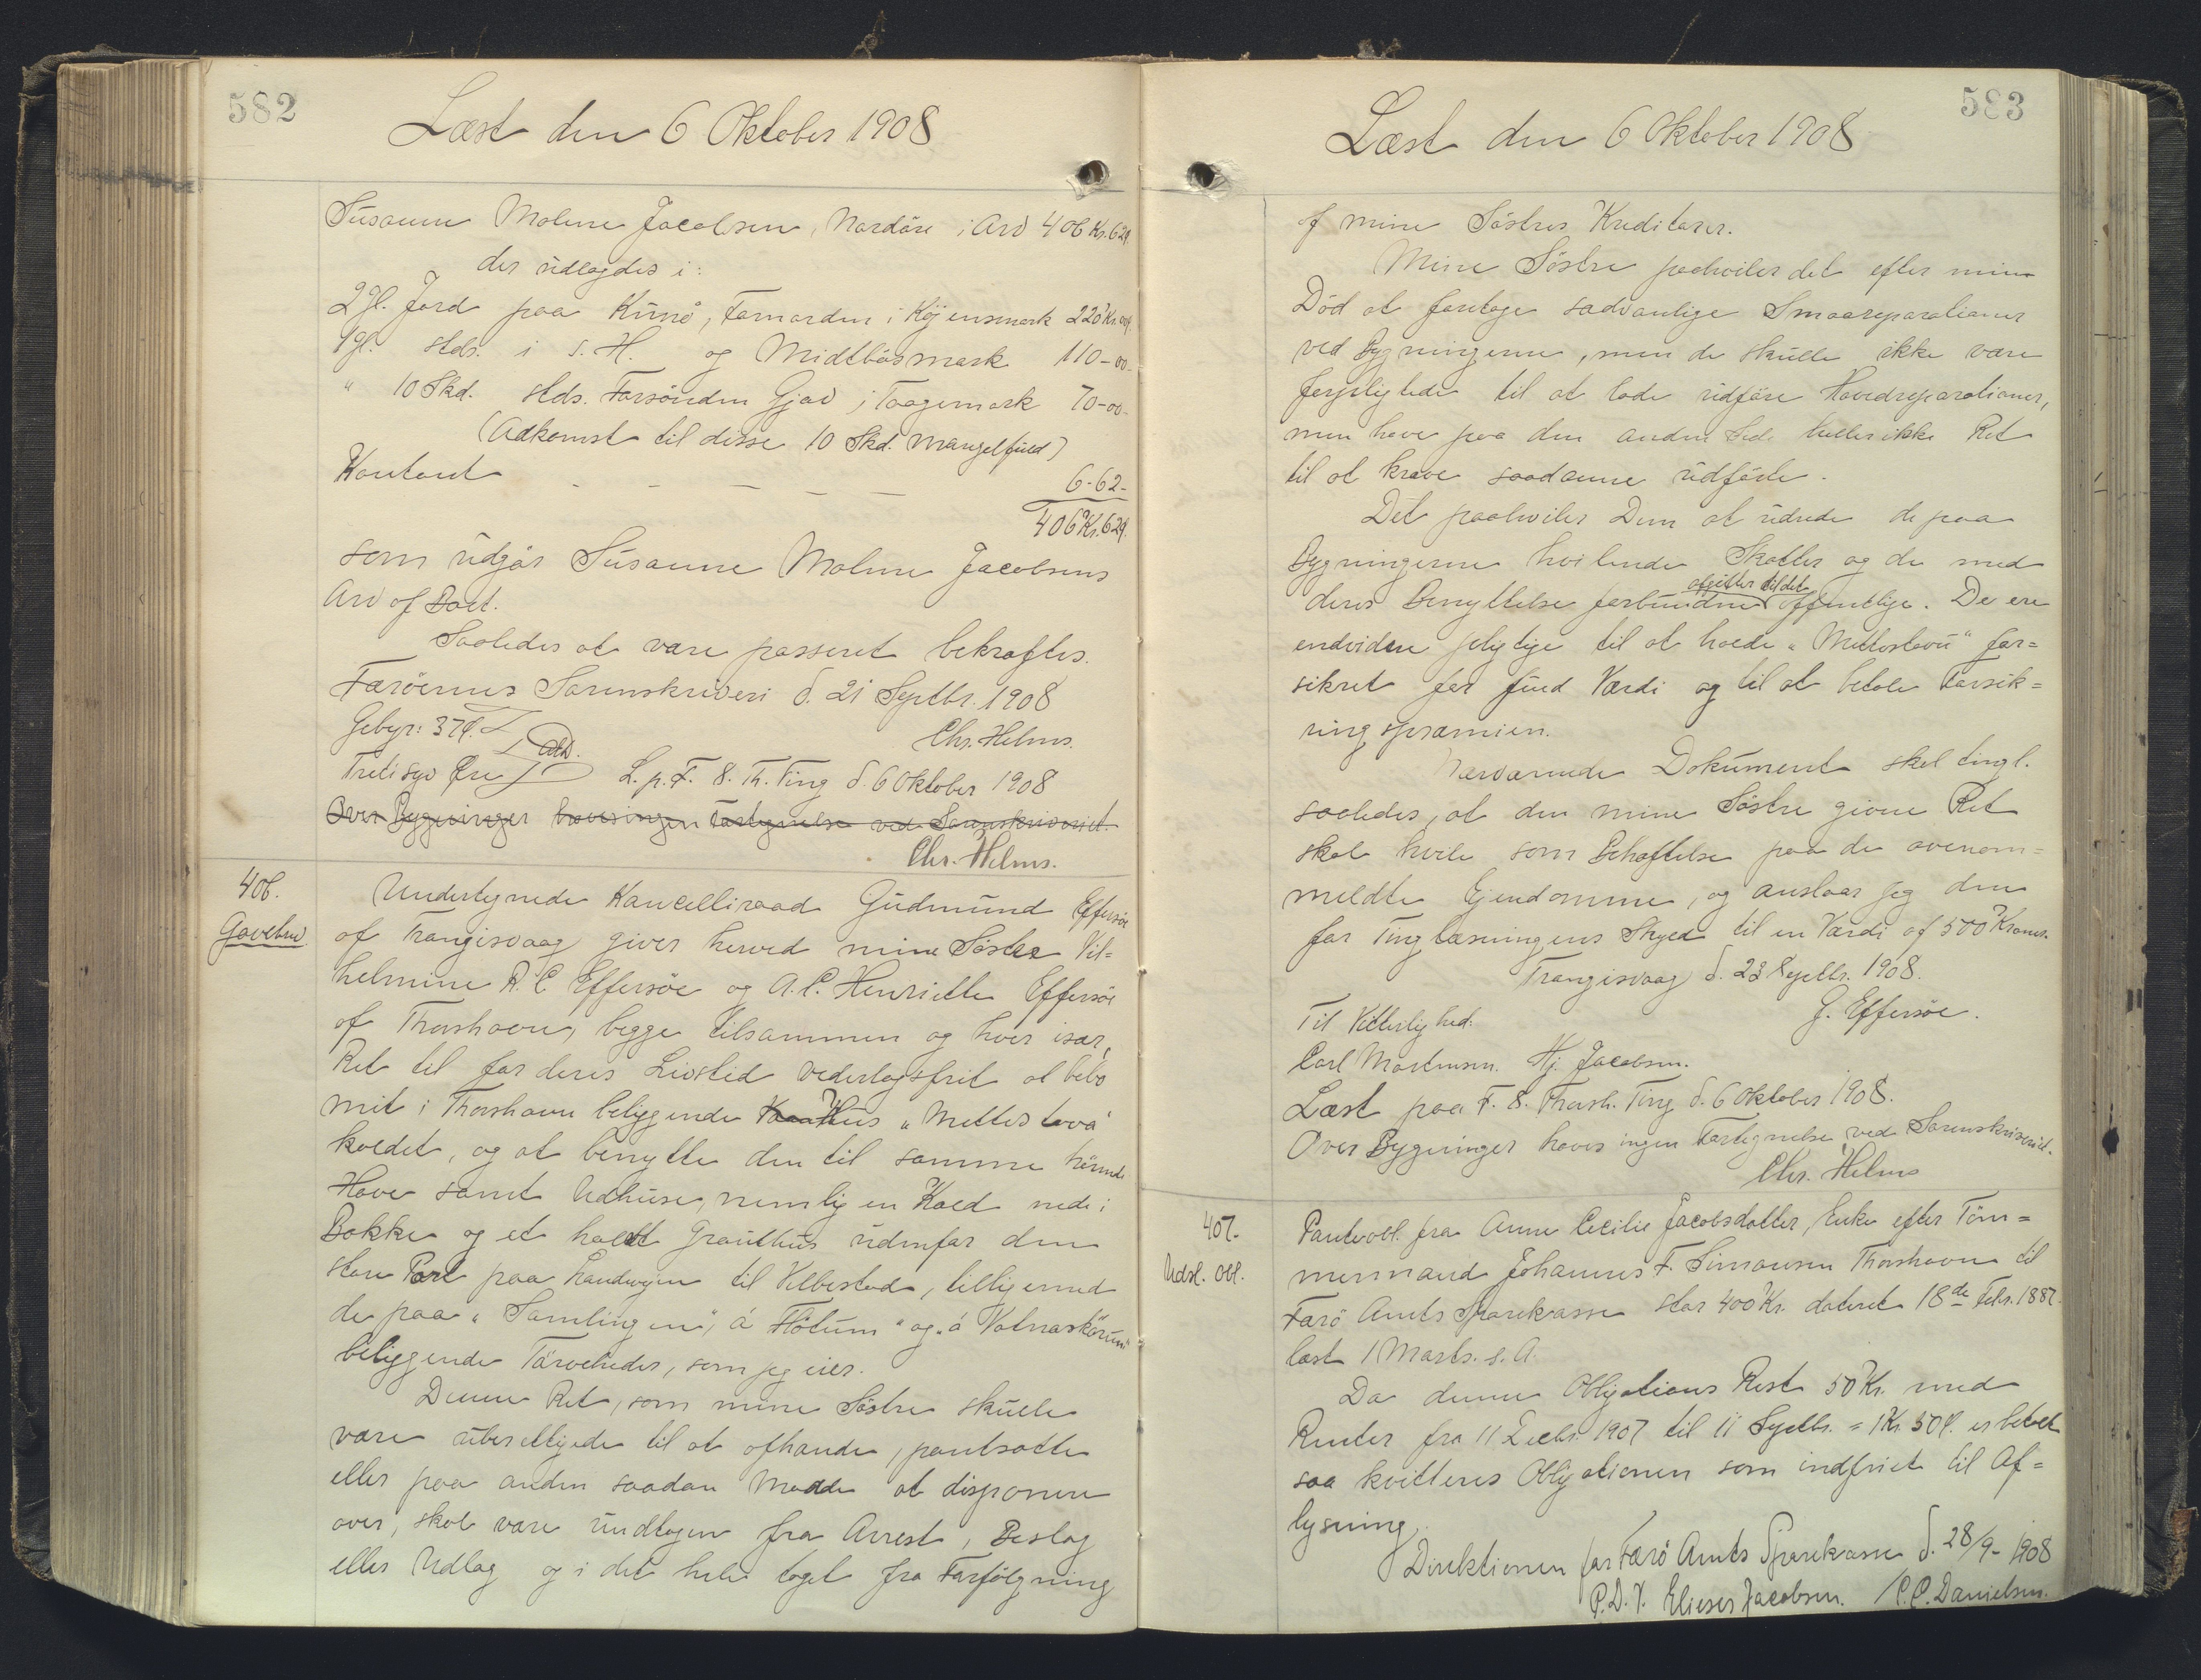 582
Læst den 6 Oktober 1908
Susanne Malene Jacobsen, Nordöre i Arv 406 Kr. 62 Ø.
der udlagdes i:
2 Gl. Jord paa Kunö, Fornorden i Köjensmark 220 Kr. 00 Ø.
1 Gl. steds. i s. H. og Midtbösmark 110-00-
" 10 Skd. steds. Forsönden Gjov i Toogemark 70-00-
(Adkomst til disse 10 Skd. mangelfuld)
Kontant - - - - - 6-62-
406 Kr. 62 Ø.
som udgör Susanne Malene Jacobsens
Arv af Boet.
Saaledes at være passeret bekræftes.
Færöernes Sorenskriveri d. 21 Septbr. 1908
Gebyr: 37 Ø. Chr. Helms.
Tretisyv Øre L. p. F. S. Th. Ting d. 6 Oktober 1908
Over Bygninger haves ingen Fortegnelse ved Sorenskriveriet.
Chr. Helms.
406.
Gavebrev
Undertegnede Kancelliraad Gudmund Effersöe
af Trangisvaag giver herved mine Søstre Vil=
helmine R. C Effersöe og A. C. Henriette Effersöe
af Thorshavn, begge tilsammen og hver især,
Ret til for deres Livstid vederlagsfrit at bebo
mit i Thorshavn beliggende Hus "Mettestova"
kaldet, og at benytte den til samme hörende
Have samt Udhuse, nemlig en Kald nede i
Bakke og et halvt Grouthus udenfor den
store Port paa Landvejen til Velbestad, tilligemed
de paa "Samlingen", "á Flötum" og "á Vatnaskörum"
beliggende Törvelader, som jeg eier.
Denne Ret, som mine Söstre skulle
være uberettigede til at afhænde, pantsætte
eller paa anden saadan Maade at disponere
over, skal være undtagen fra Arrest, Beslag
eller Udlæg og i det hele taget fra Forfölgning
583
Læst den 6 Oktober 1908
af mine Söstres Kreditorer.
Mine Söstre paahviler det efter min
Död at foretage sædvanlige Smaareparationer
ved Bygningerne, men de skulle ikke være
forpligtede til at lade udföre Hovedreparationer,
men have paa den anden Side heller ikke Ret
til at kræve saadanne udförte.
Det paahviler Dem at udrede de paa
Bygningerne hvilende Skatter og de med
afgifter til det
deres Benyttelse forbundne offentlige. De ere
endvidere pligtige til at holde "Mettestova" for=
sikret for fuld Værdi og til at betale Forsik=
ringspræmien.
Nærværende Dokument skal tingl.
saaledes, at den mine Söstre givne Ret
skal hvile som Behæftelse paa de ovenom=
meldte Ejendomme, og anslaar jeg den
for Tinglæsningens Skyld til en Værdi af 500 Kroner.
Trangisvaag d. 23 Septbr. 1908.
Til Vitterlighed: G. Effersöe.
Carl Mortensen. Hj. Jacobsen.
Læst paa F. S. Thorsh. Ting d. 6 Oktober 1908.
Over Bygninger haves ingen Fortegnelse ved Sorenskriveriet.
Chr. Helms
407.
Udsl. Obl.
Panteobl. fra Anne Cecilie Jacobsdatter, Enke efter Töm=
mermand Johannes F. Simonsen Thorshavn til
Færö Amts Sparekasse stor 400 Kr. dateret 18de Febr. 1887.
læst 1 Marts. s. A.
Da denne Obligations Rest 50 Kr. med
Renter fra 11 Decbr. 1907 til 11 Septbr. = 1 Kr. 50 Ø. er betalt
saa kvitteres Obligationen som indfriet til Af=
lysning.
Direktionen for Færö Amts Sparekasse d. 28/9- 1908
P.D.V. Elieser Jacobsen. /C. C. Danielsen.